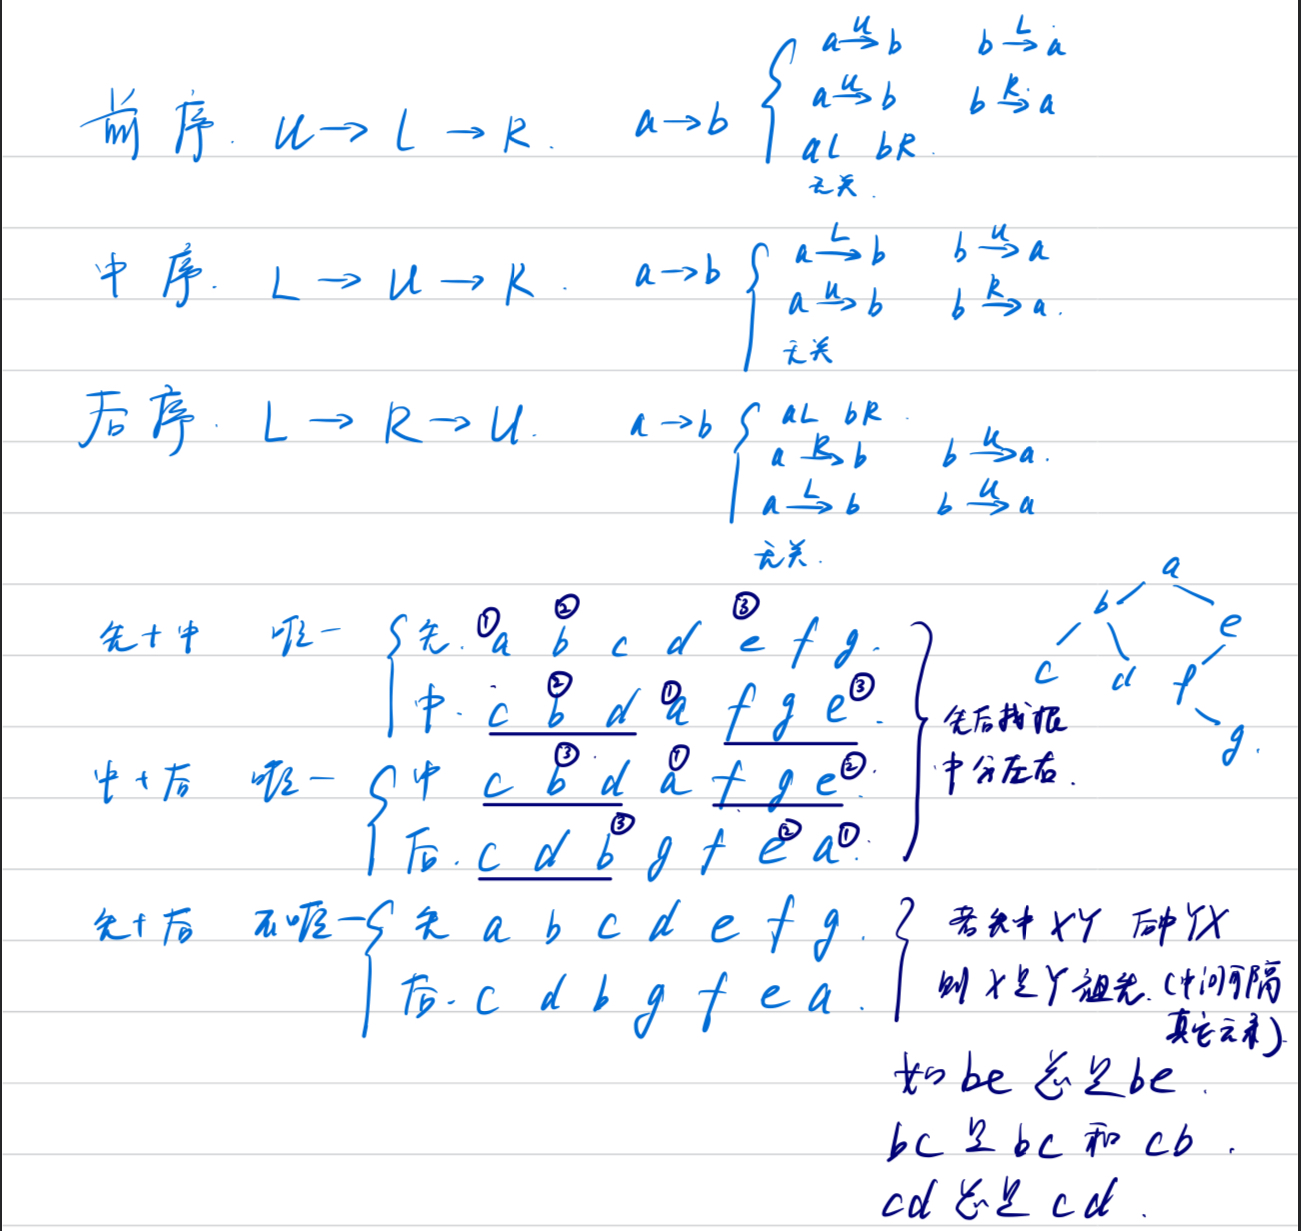 前序. U→L→R. a→b { a U→ b b L→ a
a U→ b b R→ a
aL bR.
无关.
中序. L→U→R. a→b { a L→ b b U→ a
a U→ b b R→ a.
无关
后序. L→R→U. a→b { aL bR.
a R→ b b U→ a.
a L→ b b U→ a
无关.
先+中 唯一 { 先. ①a ②b c d ③e f g.
中. c ②b d ①a f g e③.
中+后 唯一 { 中 c ③b d ①a f g e②.
后. c d b③ g f e② a①.
} 先后找根
中分左右.
a
b e
c d f
g.
先+后 不唯一 { 先 a b c d e f g.
后. c d b g f e a.
{ 若先中XY 后中YX
则X是Y祖先.(中间可隔
其它元素).
如be总是be.
bc是bc和cb.
cd总是cd.